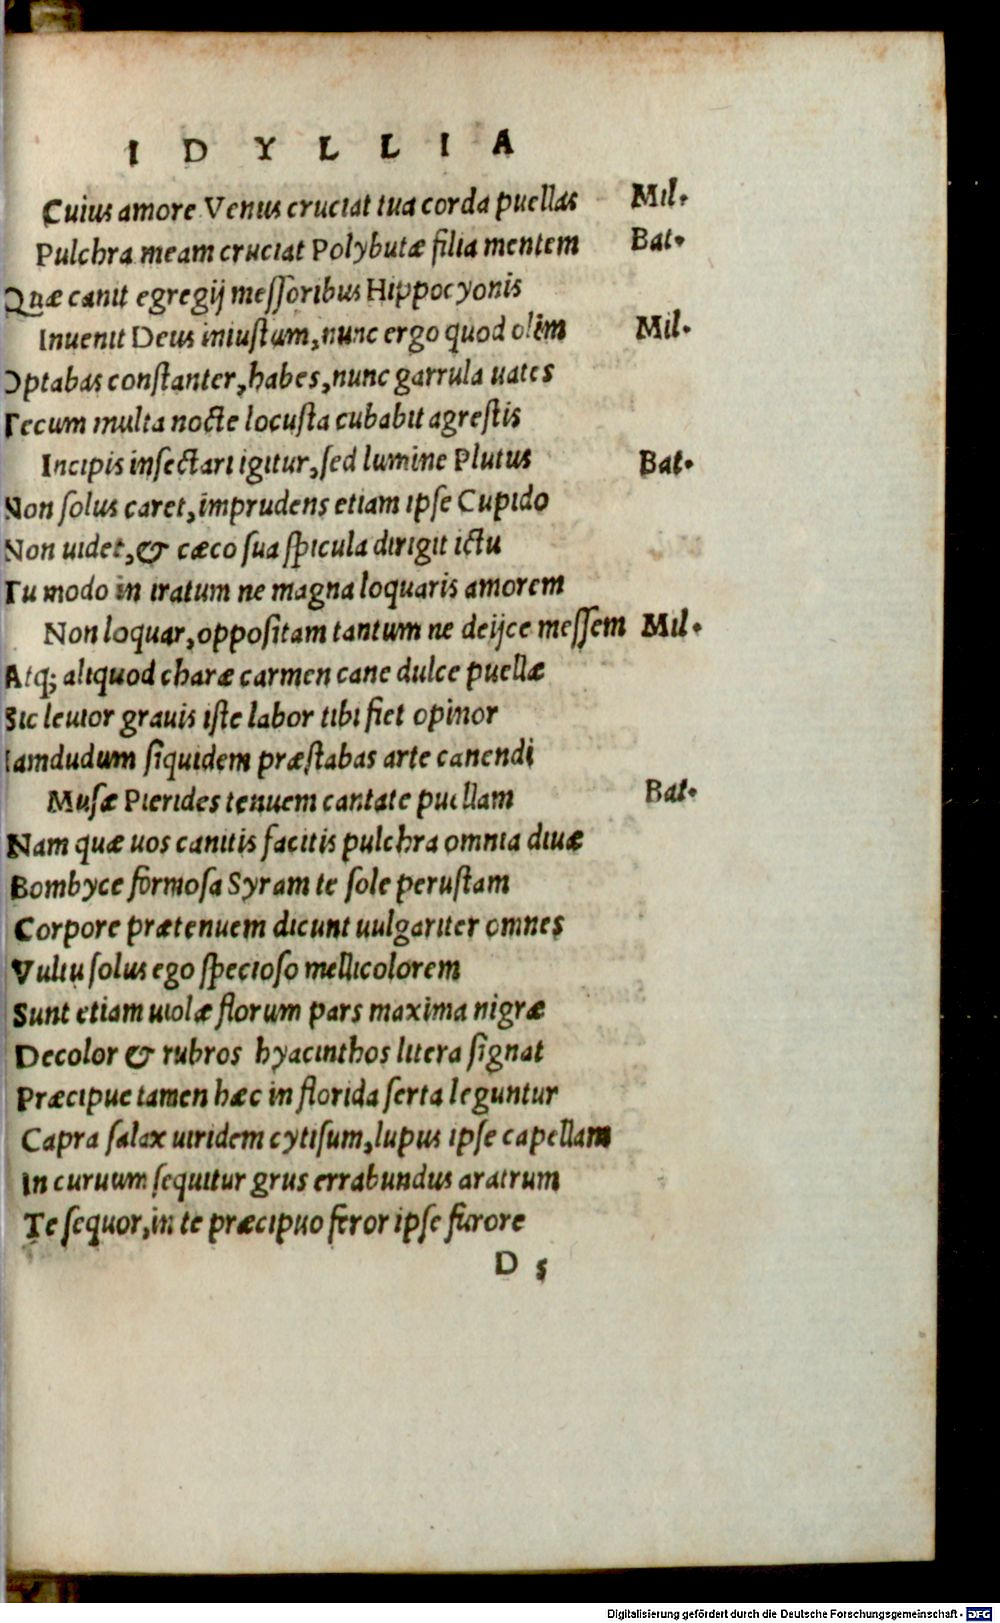 IDYLLIA
Cuius amore Venus cruciat tua corda puellas Mil.
Pulchra meam cruciat Polybutæ filia mentem Bat.
Quæ canit egregij messoribus Hippocyonis
Inuenit Deus iniustum, nunc ergo quod olim Mil.
Optabas constanter, habes, nunc garrula uates
Tecum multa nocte locusta cubabit agrestis
Incipis insectari igitur, sed lumine Plutus Bat.
Non solus caret, imprudens etiam ipse Cupido
Non uidet, & cæco sua spicula dirigit ictu
Tu modo in iratum ne magna loquaris amorem
Non loquar, oppositam tantum ne deijce messem Mil.
Atq; aliquod charæ carmen cane dulce puellæ
Sic leuior grauis iste labor tibi fiet opinor
Iamdudum siquidem præstabas arte canendi
Musæ Pierides tenuem cantate puellam Bat.
Nam quæ uos canitis facitis pulchra omnia diuæ
Bombyce formosa Syram te sole perustam
Corpore prætenuem dicunt uulgariter omnes
Vultu solus ego specioso mellicolorem
Sunt etiam uiolæ florum pars maxima nigræ
Decolor & rubros hyacinthos litera signat
Præcipue tamen hæc in florida serta leguntur
Capra salax uiridem cytisum, lupus ipse capellam
In curuum sequitur grus errabundus aratrum
Te sequor, in te præcipuo feror ipse furore
D s
Digitalisierung gefördert durch die Deutsche Forschungsgemeinschaft - DFG